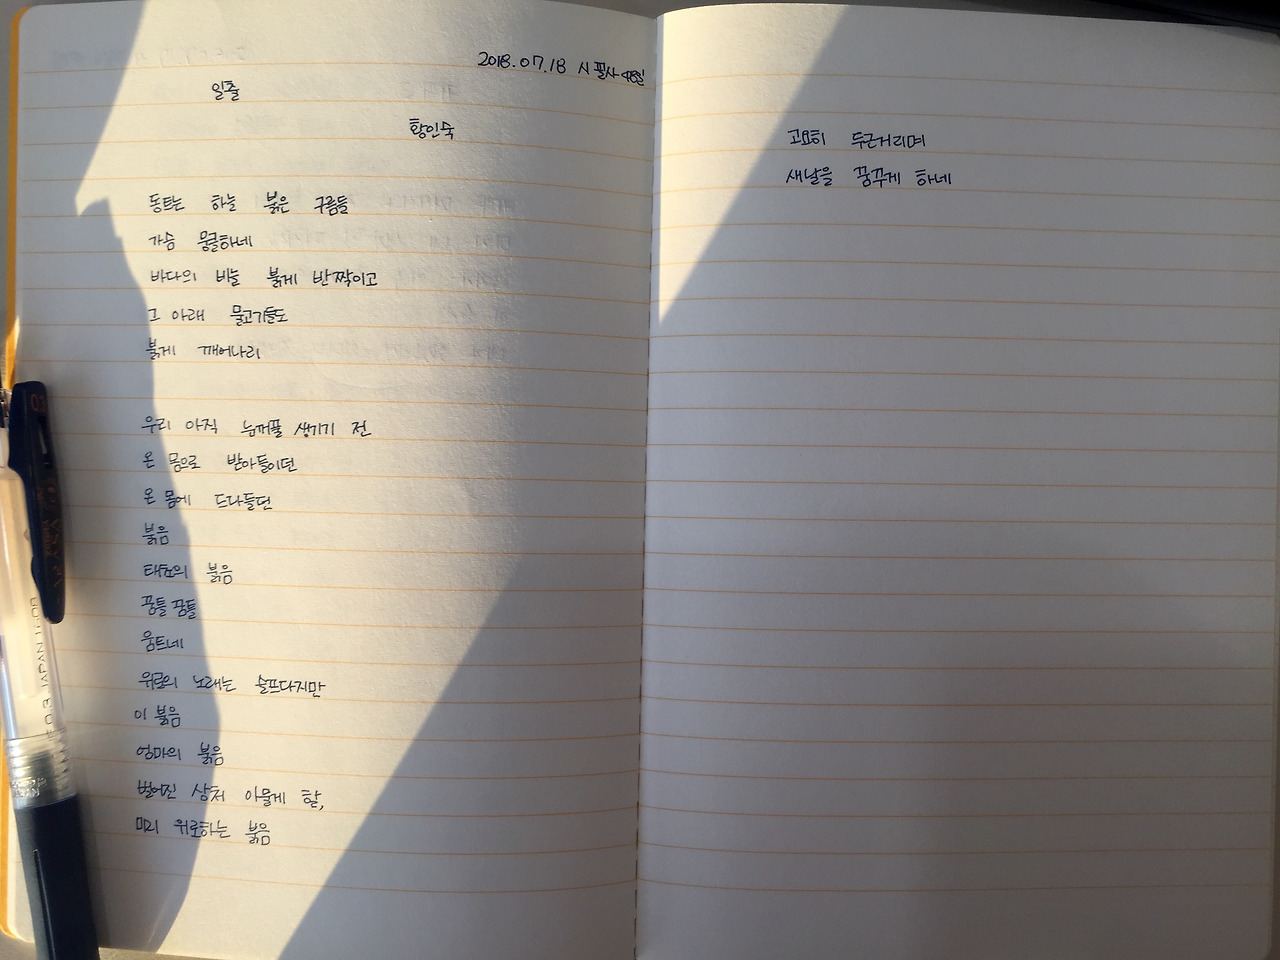 2018.07.18 시 필사 48일
일출
황인숙
동트는 하늘 붉은 구름들
가슴 뭉클하네
바다의 비늘 붉게 반짝이고
그 아래 물고기들도
붉게 깨어나리
우리 아직 눈꺼풀 생기기 전
온 몸으로 받아들이던
온 몸에 드나들던
붉음
태초의 붉음
꿈틀꿈틀
움트네
위로의 노래는 슬프다지만
이 붉음
엄마의 붉음
벌어진 상처 아물게 할,
미리 위로하는 붉음
고요히 두근거리며
새날을 꿈꾸게 하네
JAPAN